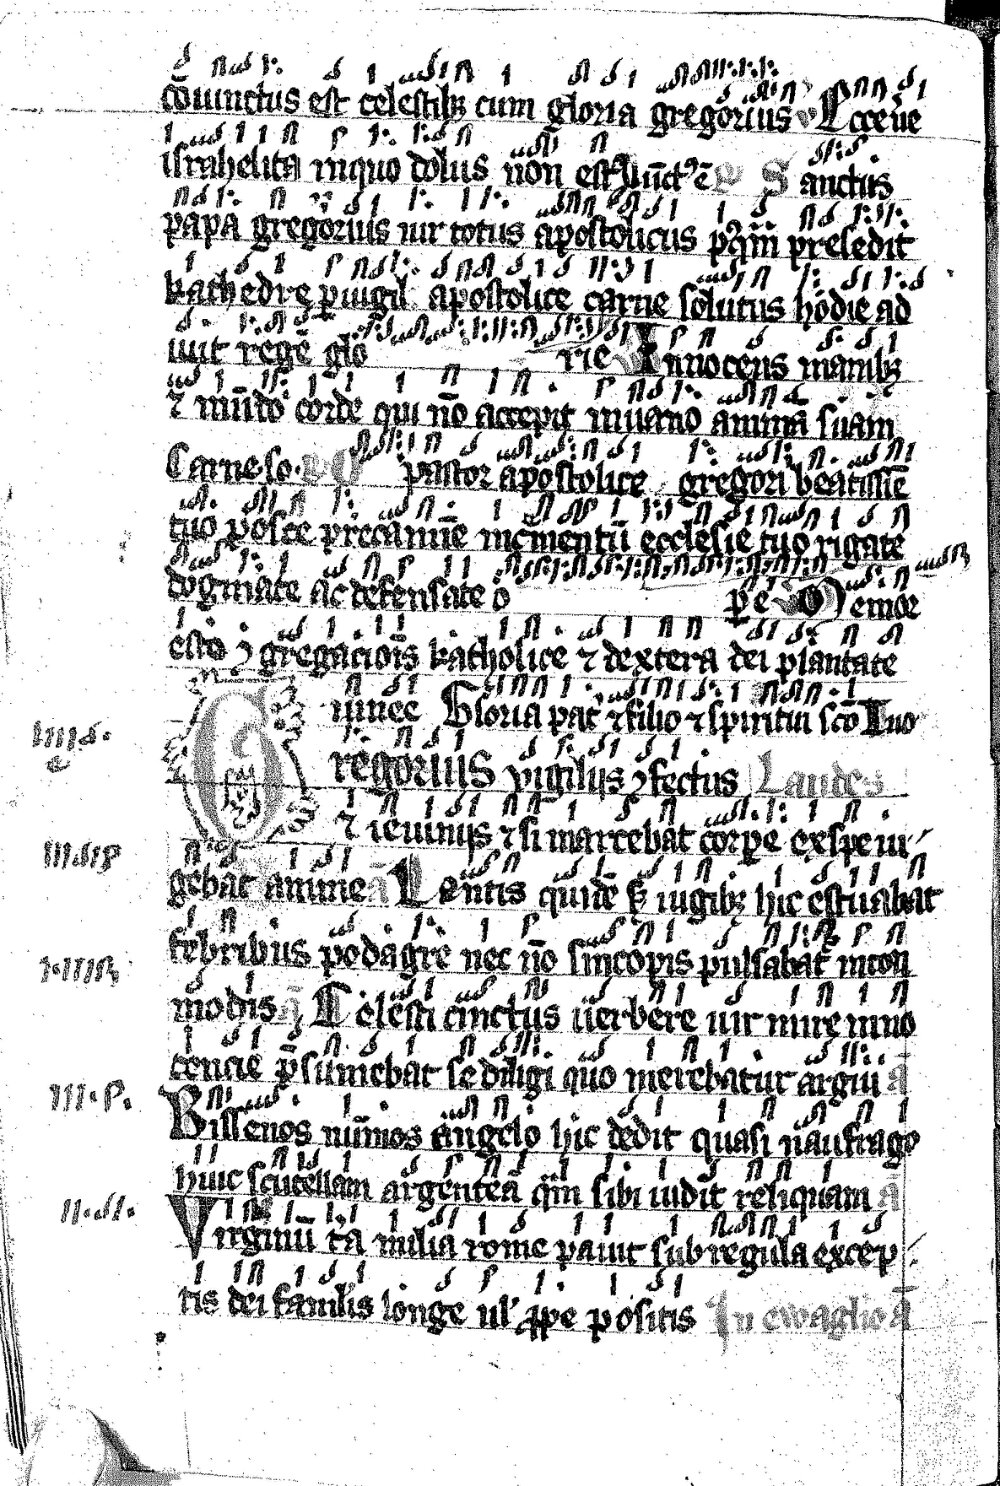 cōiunctus est celestibꝫ cum gloria gregorius v Ecce ue
israhelita inquo dolus non est Iūctꝰ ē R Sanctus
papa gregorius uir totus apostolicus presedit
kathedre puigil apostolice carne solutus hodie ad
iuit regē glo rie v Innocens manibꝫ
⁊ mūdo corde qui nō accepit inuano animā suam
Carne so R O pastor apostolice gregori beatissīe
tuo posce precamīe incrementū ecclesie tuo rigate
dogmate ac defensate o pe v Memor
esto ꝯgregaciois katholice ⁊ dextera dei plantate
Gloria pat ⁊ filio ⁊ spiritui scō In uo
Gregorius vigilijs ꝯfectus Laudes
⁊ ieiunijs ⁊ si marcebat corpe ex spe ui
gebat anime a Lentis quidē sꝫ iugibꝫ hic estuabat
febribus podagre nec nō sincopis pulsabat incon
modis a Celesti cinctus uerbere uir mire inno
cencie p̄sumebat se diligi quo merebatur argui a
Bissenos nūmos angelo hic dedit quasi naufrago
huic scutellam argenteā qm sibi uidit reliquam a
Virginū tria milia rome pauit sub regula excep
tis dei famulis longe ul' ꝓpe positis In ewāglio a